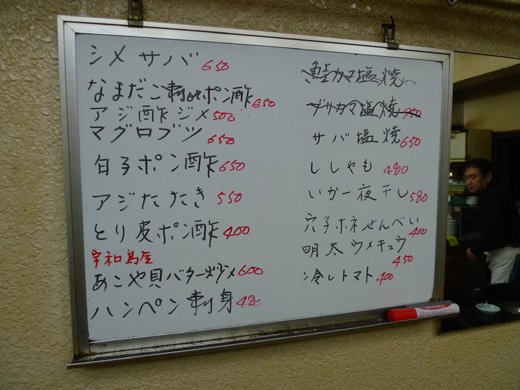 シメサバ 650
なまだこ刺 ポン酢 650
アジ酢ジメ 500
マグロブツ 650
白子ポン酢 650
アジたたき 550
とり皮ポン酢 400
宇和島産
あこや貝バター
600
ハンペン刺身 420
鮭カマ塩焼
ブリカマ塩焼
サバ塩焼 650
ししゃも 480
いか一夜干し 580
穴子ホネせんべい 400
明太ウメキュウ 450
冷しトマト 400